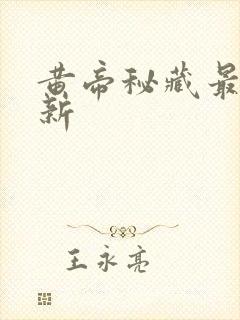 黄帝秘藏最
新
王永亮